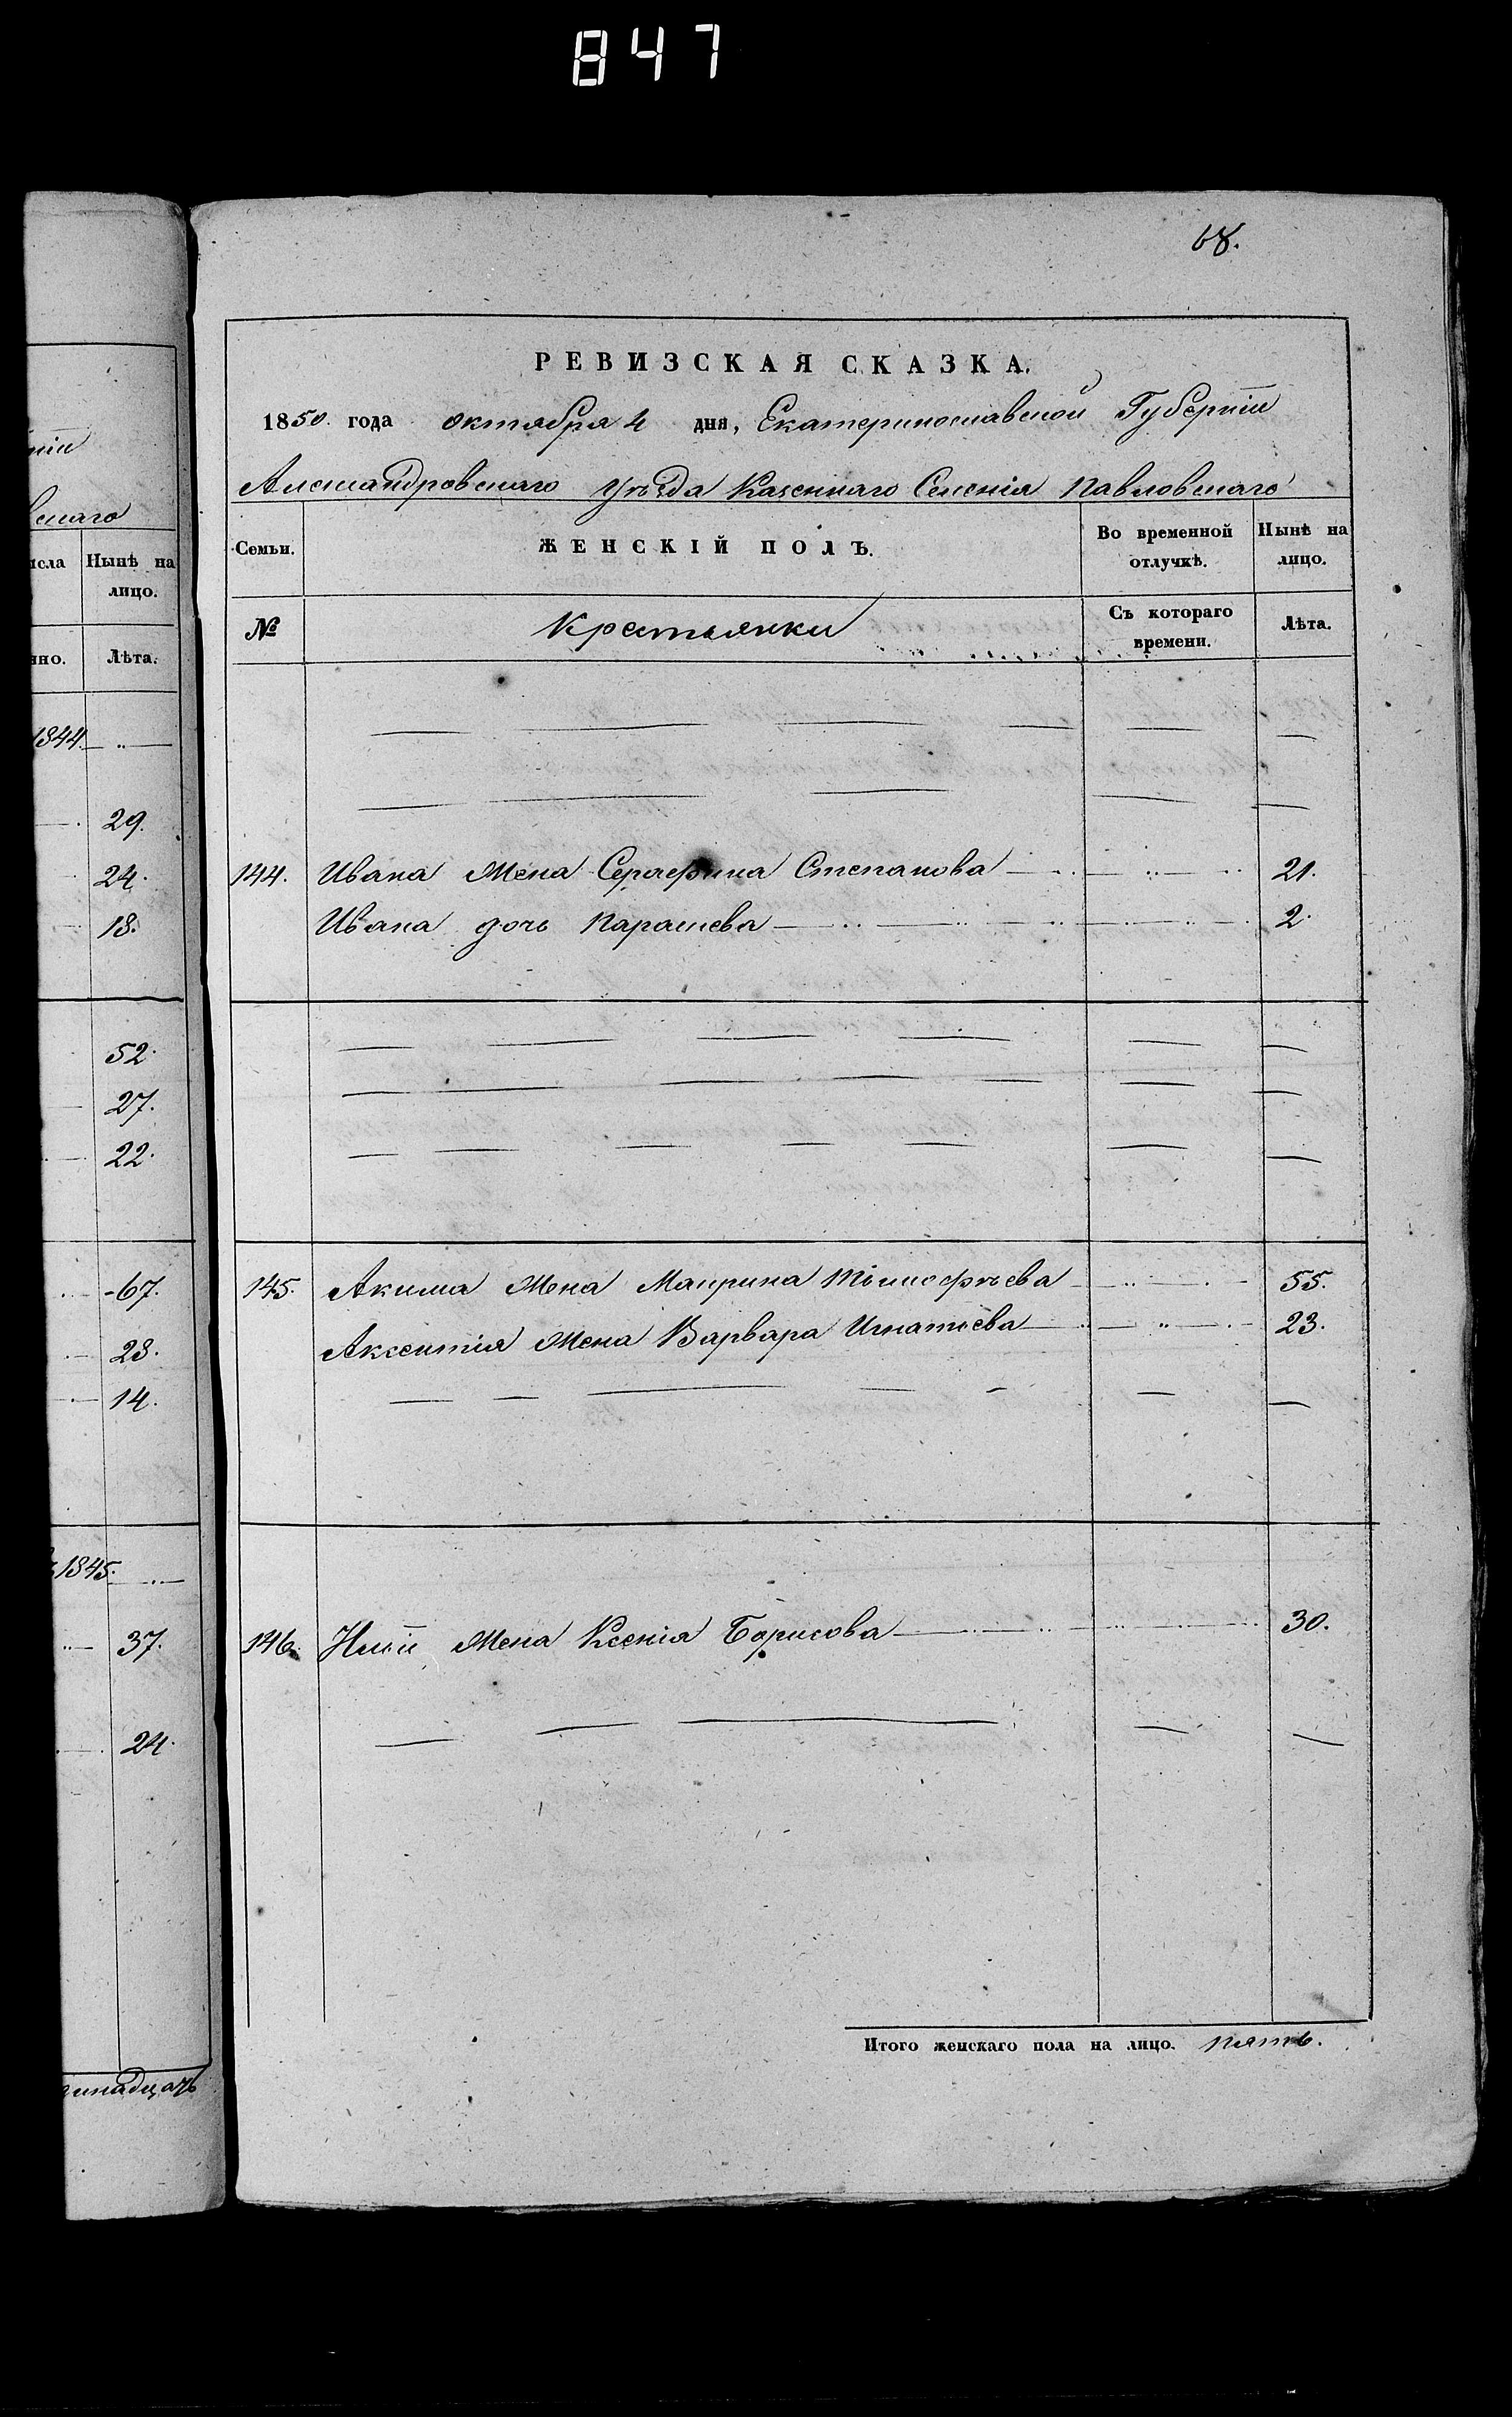 847
68.
нiи
вскаго
исла Нынѣ на лицо.
нно. Лѣта.
1844
29.
24.
18.
52.
27.
22.
67.
28.
14.
1845.
37.
24.
динадцать
РЕВИЗСКАЯ СКАЗКА.
1850. года октября 4 дня, Екатеринославской Губернiи
Александровскаго уѣзда Казеннаго Селенiя Павловскаго
Семьи. ЖЕНСКIЙ ПОЛЪ. Во временной отлучкѣ. Нынѣ на лицо.
№ Крестьянки Съ котораго времени. Лѣта.
144. Ивана Жена Серафима Степанова 21.
Ивана дочь Парасгева 2.
145. Акима Жена Маирина Тимофѣева 55.
Аксентiя Жена Варвара Игнатьева 23.
146. Жена Ксенiя Борисова 30.
Итого женскаго пола на лицо. пять.